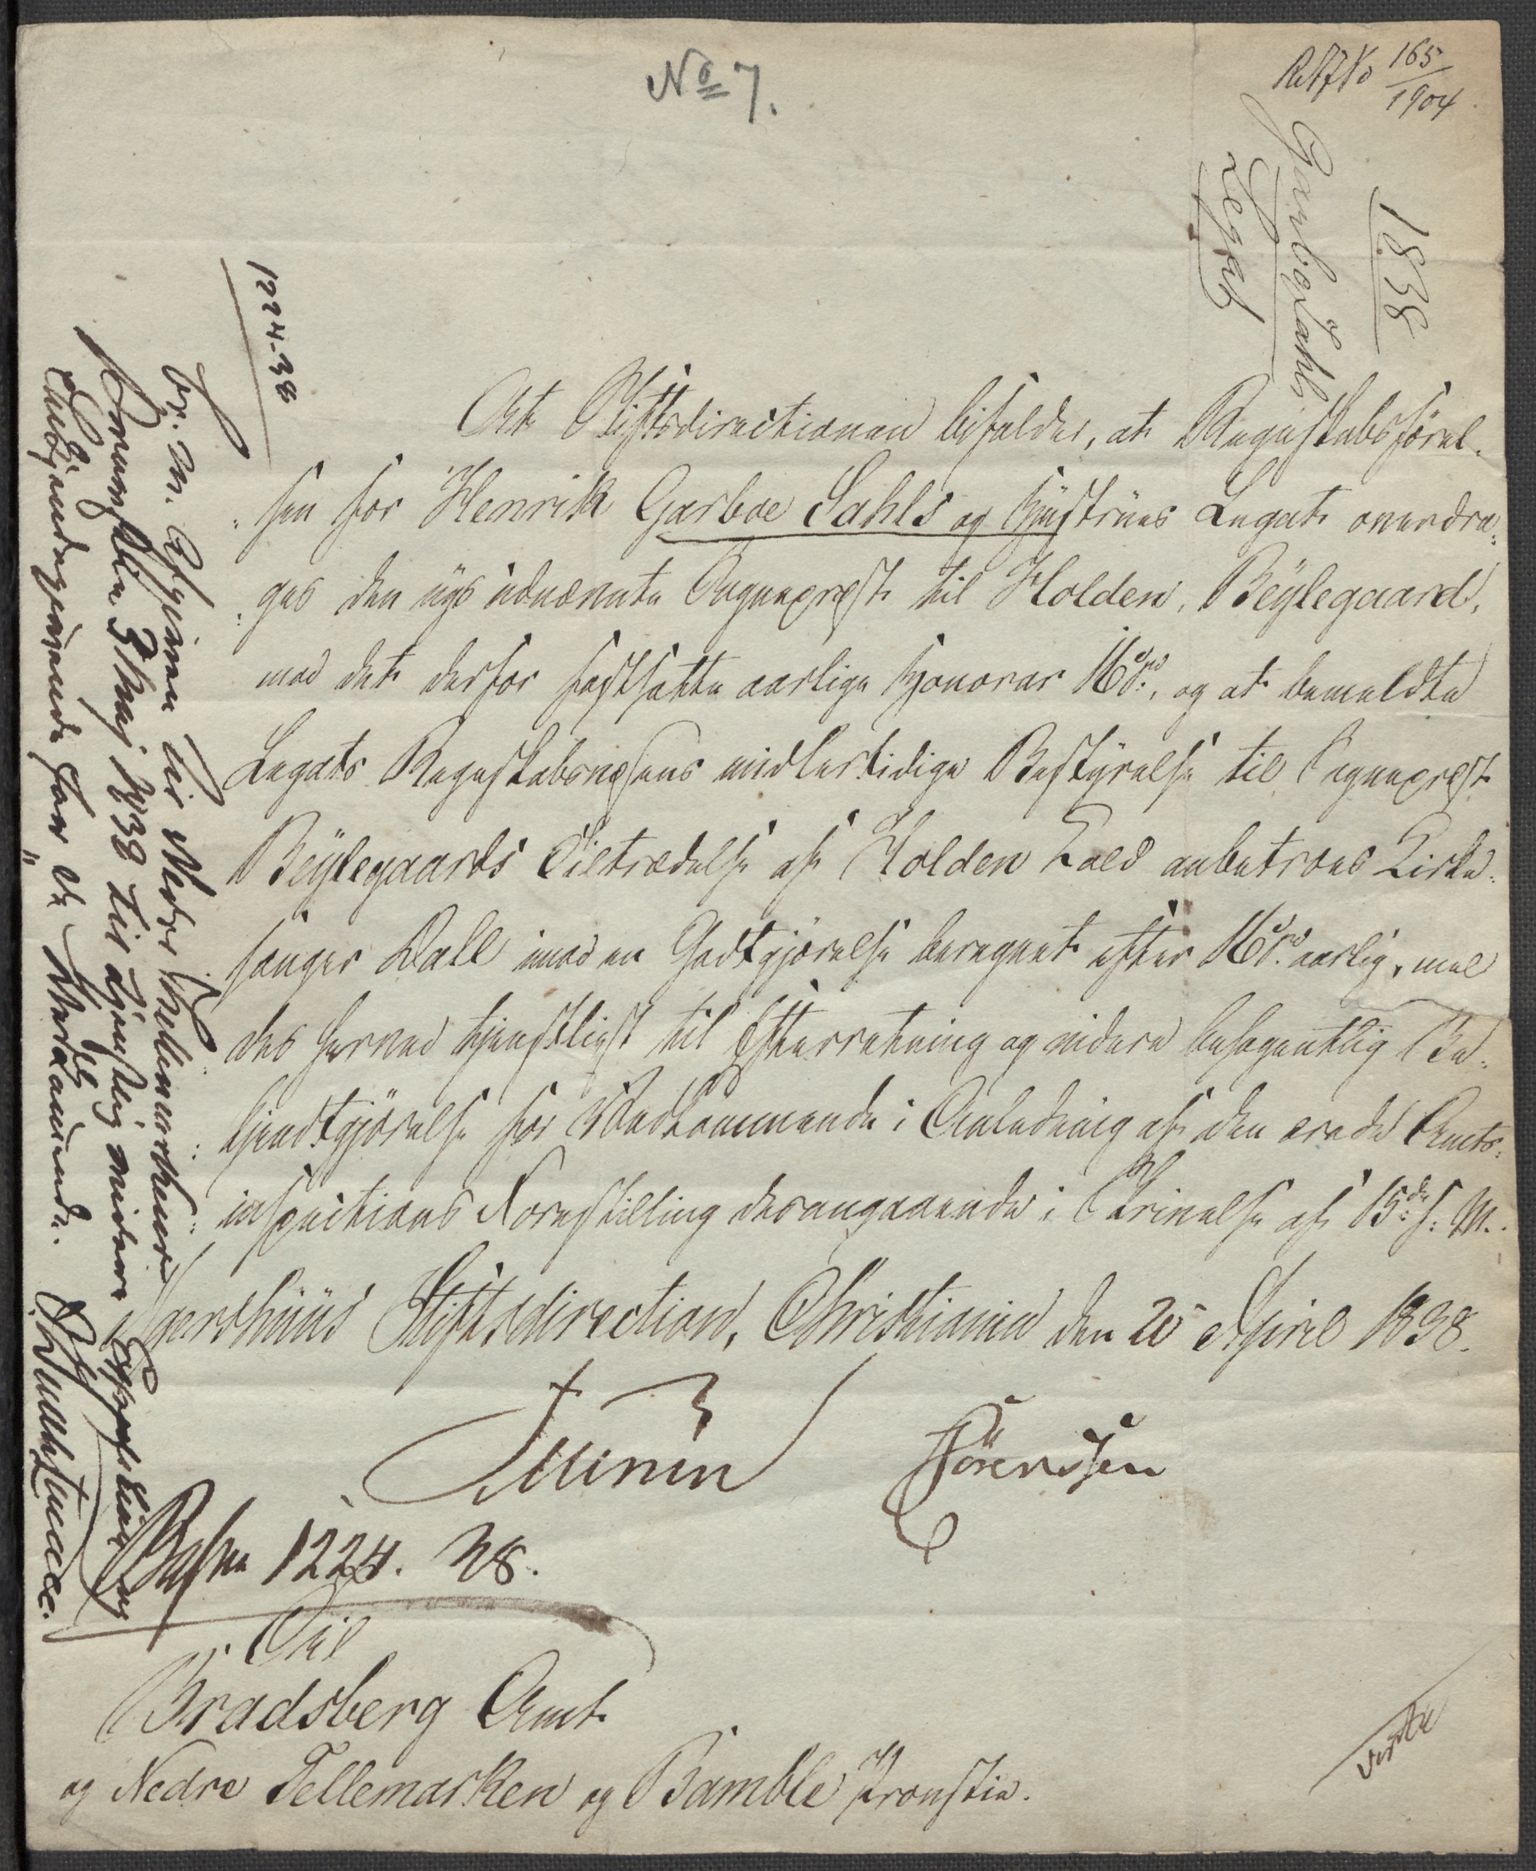 No 7.
165/1904
1838
Garboe Sahls
Legat
1224-38
At Stiftsdirectionen bifalder, at Regnskabsførel-
sen for Henrik Garboe Sahls og Hustrues Legat overdra-
ges den nys udnævnte Sognepræst til Holden, Beylegaard,
mod det derfor fastsatte aarlige Honorar 16 Spd., og at bemeldte
Legats Regnskabsvæsens midlertidige Bestyrelse til Sognepræst
Beylegaards Tiltrædelse af Holden Kald anbetroes Kirke-
sanger Dall imod en Godtgjørelse beregnet efter 16 Spd. aarlig, mel-
des herved tjenstligst til Efterretning og videre behagentlig Be-
kjendtgjørelse for Vedkommende i Anledning af den ærede Amts-
inspections Forestilling desangaaende i Skrivelse af 15de f. M.
Agershuus Stiftsdirection, Christiania den 20 April 1838.
Sörenssen
1224. 38.
Til
Bradsberg Amt
og Nedre Tellemarken og Bamble Provstie.
vende
Br. m. Afgiven til Nedre Tellemarkens
3 Maj 1838 til tjenstlig videre Expedition og
Tilkjendegivende for de Vedkommende.